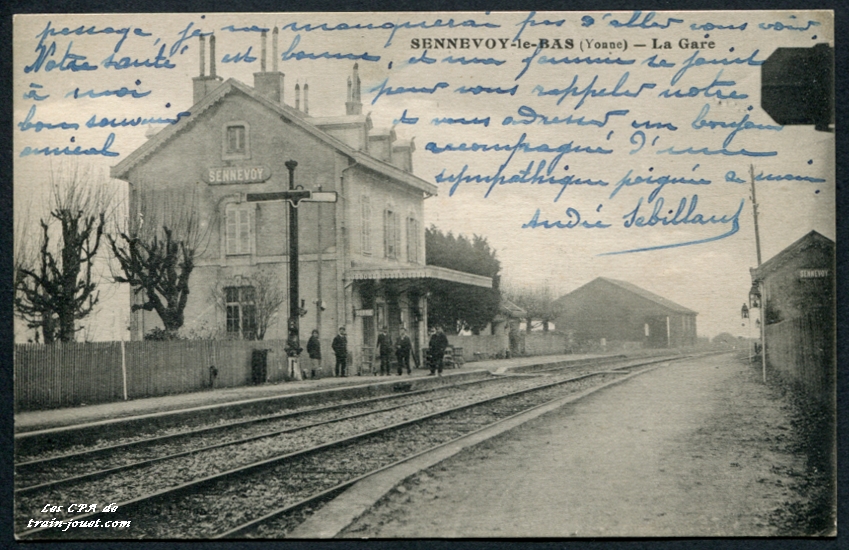 passage, je ne manquerai pas d'aller vous voir.
SENNEVOY-le-BAS (Yonne) — La Gare
Notre santé est bonne, et ma femme se joint
à moi pour vous rappeler notre
bon souvenir et vous adresser un bonjour
amical accompagné d'une
sympathique poignée de main.
André Sebillaut
SENNEVOY
SENNEVOY
Les CPA de
train-jouet.com